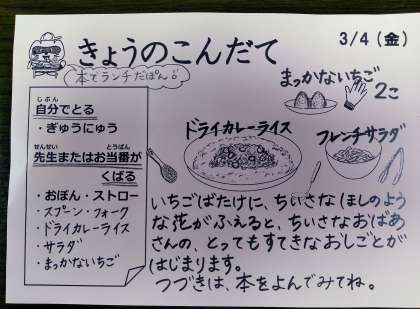 きょうのこんだて
3/4(金)
本でランチだぽん!
じぶん
自分でとる
・ぎゅうにゅう
せんせい とうばん
先生またはお当番が
くばる
・おぼん・ストロー
・スプーン・フォーク
・ドライカレーライス
・サラダ
・まっかないちご
まっかないちご
2こ
ドライカレーライス
フレンチサラダ
いちごばたけに、ちいさなほしのよう
な花がふえると、ちいさなおばあ
さんの、とってもすてきなおしごとが
はじまります。
つづきは、本をよんでみてね。